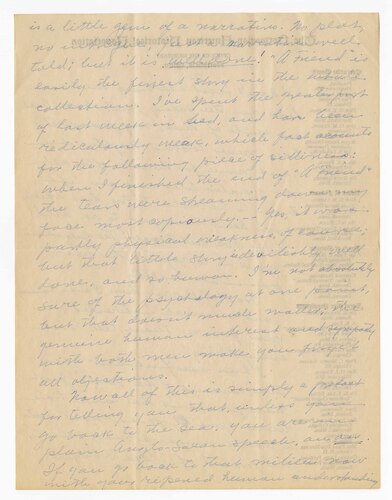 is a little gem of a narrative. No plot,
no
told; but it is well done! "A Friend is
easily the finest story in the whole
collection. I've spent the greater part
of last week in bed, and have been
rediculously weak, which fact accounts
for the following piece of silliness:
When I finished the end of "A Friend"
the tears were streaming down my
face most copiously. -- Yes, it was
partly physical weakness, of course,
but that little story is delightfully well
done, and so human. I'm not absolutely
sure of the psychology at one point,
but that doesn't make matter, the
genuine human interest and sympathy
with both men make you forget
all objections.
Now all of this is simply a pretext
for telling you that, unless you
go back to the sea, you are in
plain Anglo-Saxon speech, an ass.
If you go back to that milieu now
with your ripened human understanding